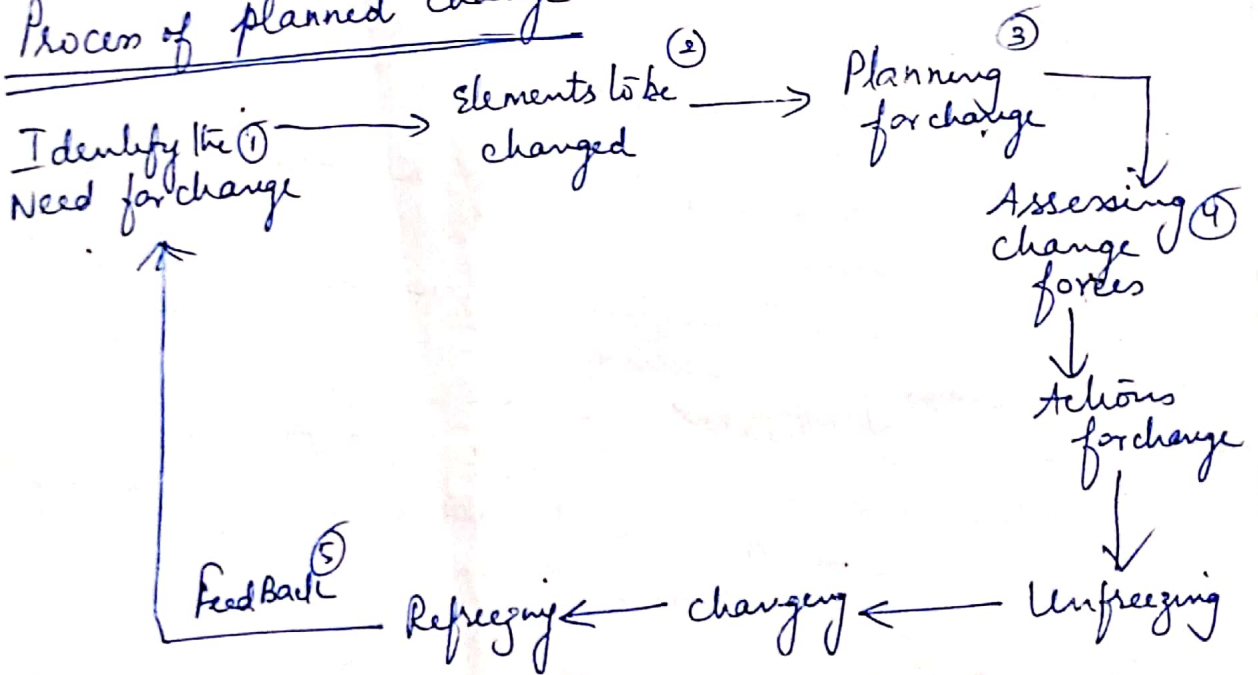 Process of planned change
Identify the ①
Need for change
Elements to be ②
changed
Planning ③
for change
Assessing ④
change
forces
Actions
for change
Unfreezing
changing
Refreezing
FeedBack ⑤